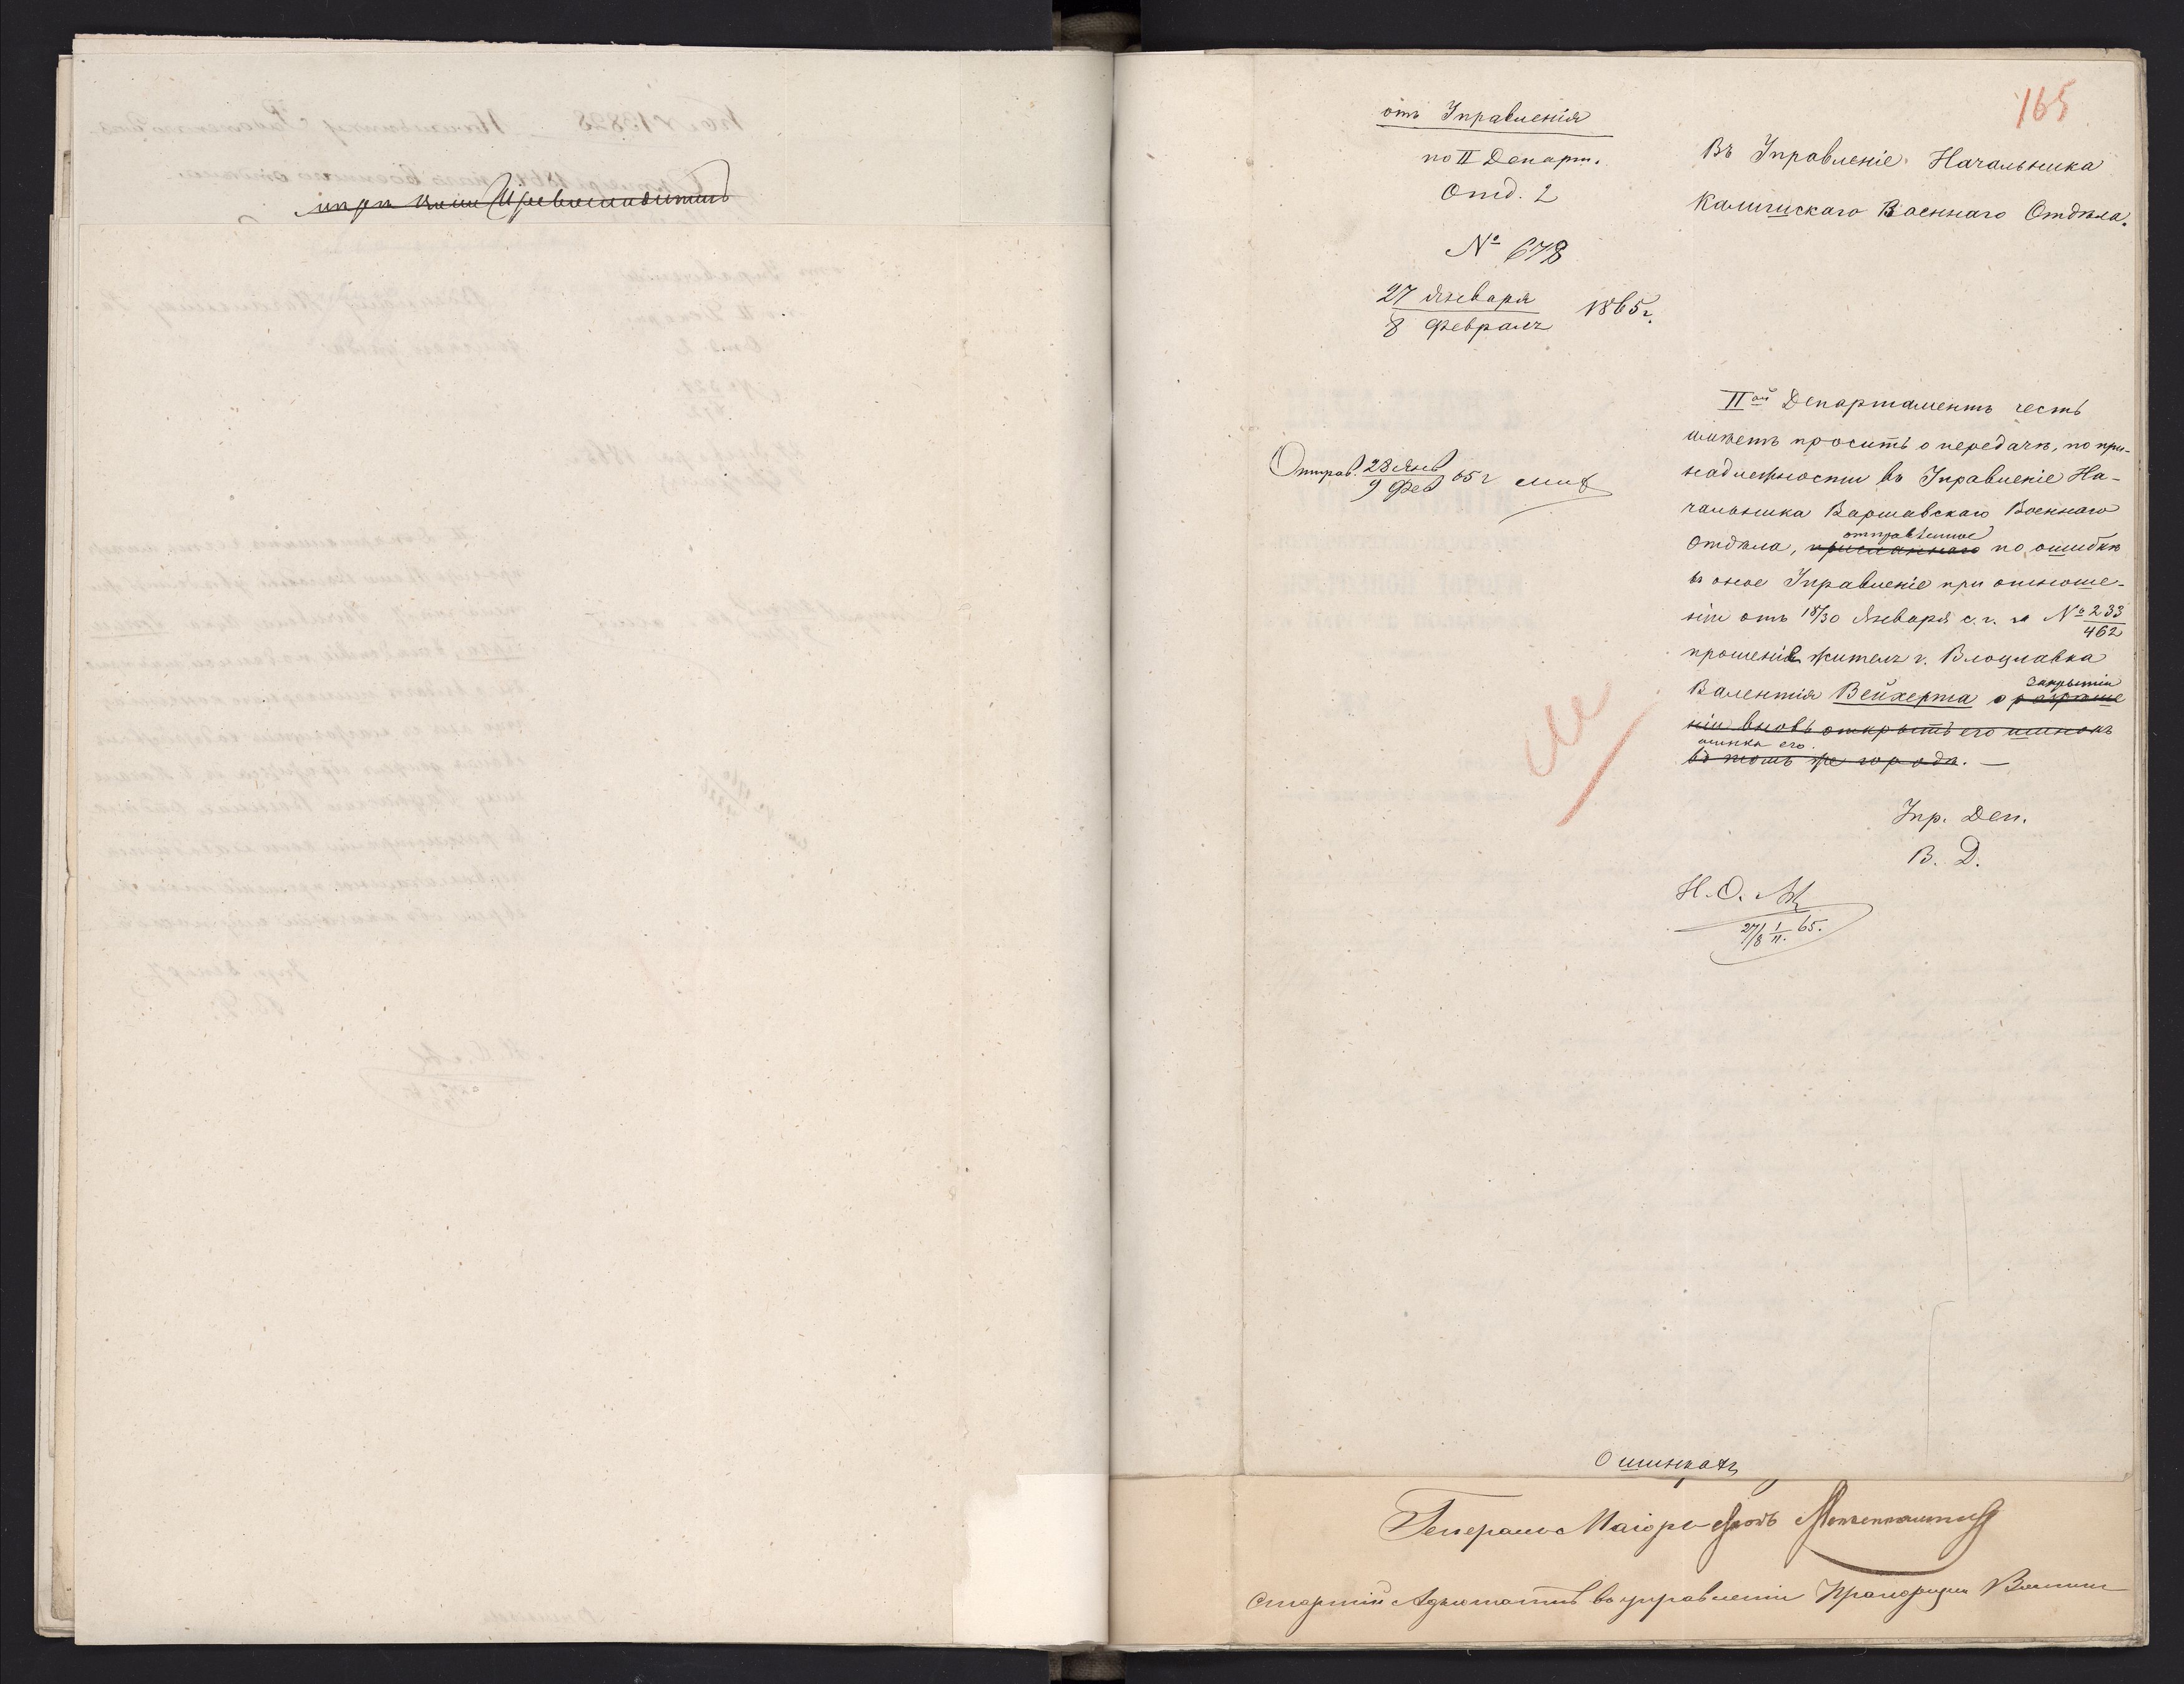 165
отъ Управленія
по II Департ.
Отд. 2
№ 678
27 Января
8 Февраля 1865 г.
Въ Управленіе Начальника
Калишскаго Военнаго Отдѣла.
Отправ. 28 Янв 65 г
9 Фев
IIой Департаментъ честь
имѣетъ просить о передачѣ, по при-
надлежности въ Управленіе На-
чальника Варшавскаго Военнаго
отправленное
Отдѣла, присланнаго по ошибкѣ
въ оное Управленіе при отноше-
ніи отъ 18/30 Января с. г. за № 233
462
прошеніе жителя г. Влоцлавка
закрытіи
Валентія Вейхерта о разрѣше
ніи вновь открыть его шинокъ
шинка его
въ томъ же городѣ. —
Упр. Деп.
В. Д.
Н. О.
27/8 I/II. 65.
О шинкахъ
Генералъ Маіоръ фонъ
Старшій Адъютантъ въ управленіи Прапорщикъ